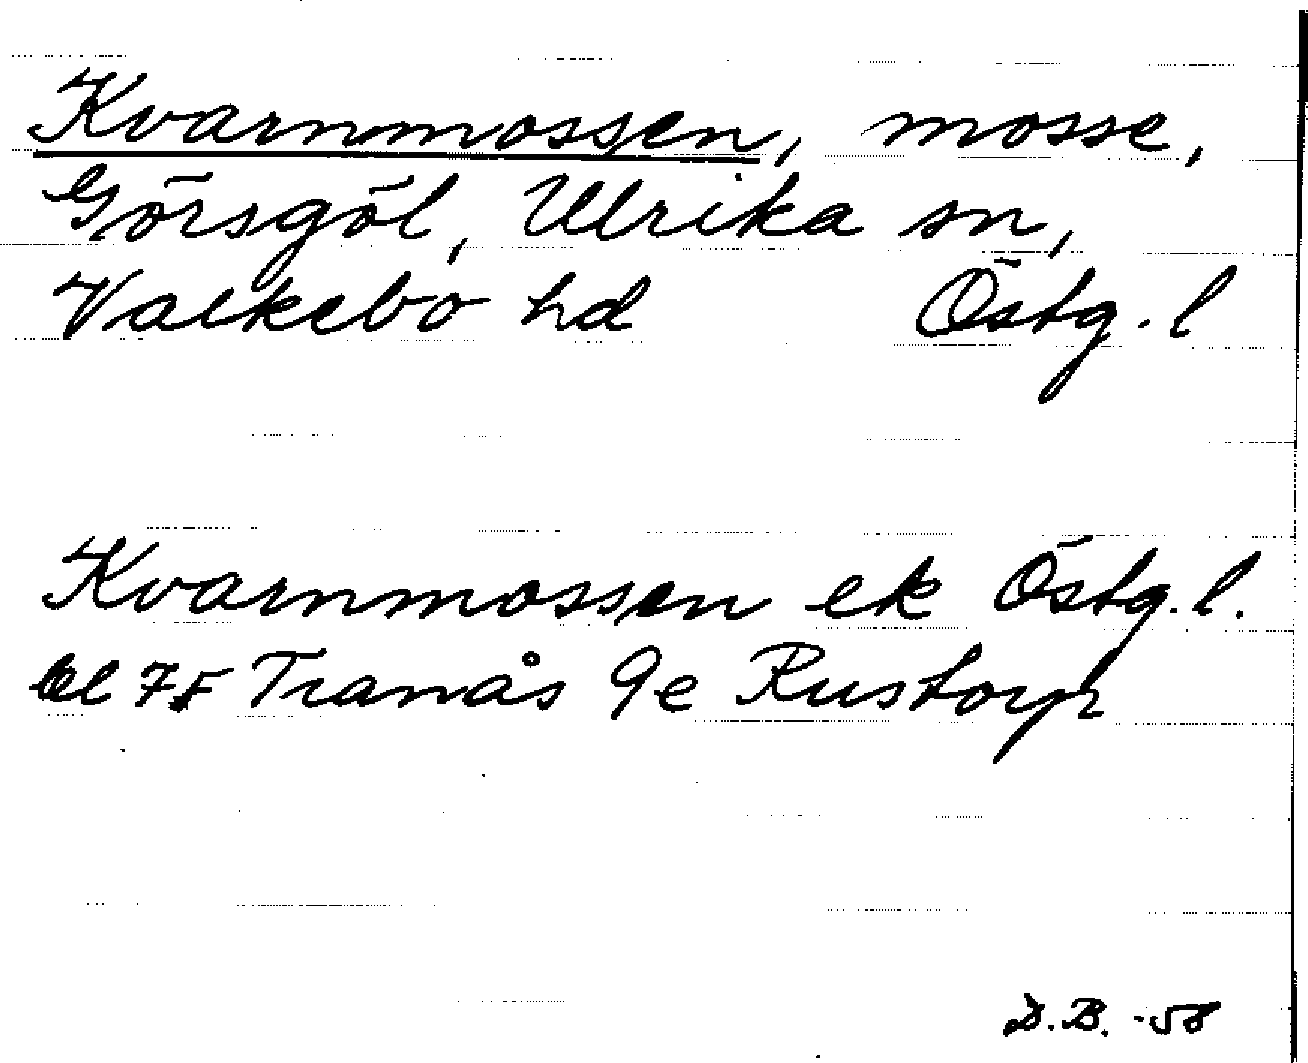 Kvarnmossen, mosse,
Görsgöl, Ulrika sn,
Valkebo hd Östg. l
Kvarnmossen ek Östg. l.
bl 7F Tranås 9e Rustorp
D.B. -58